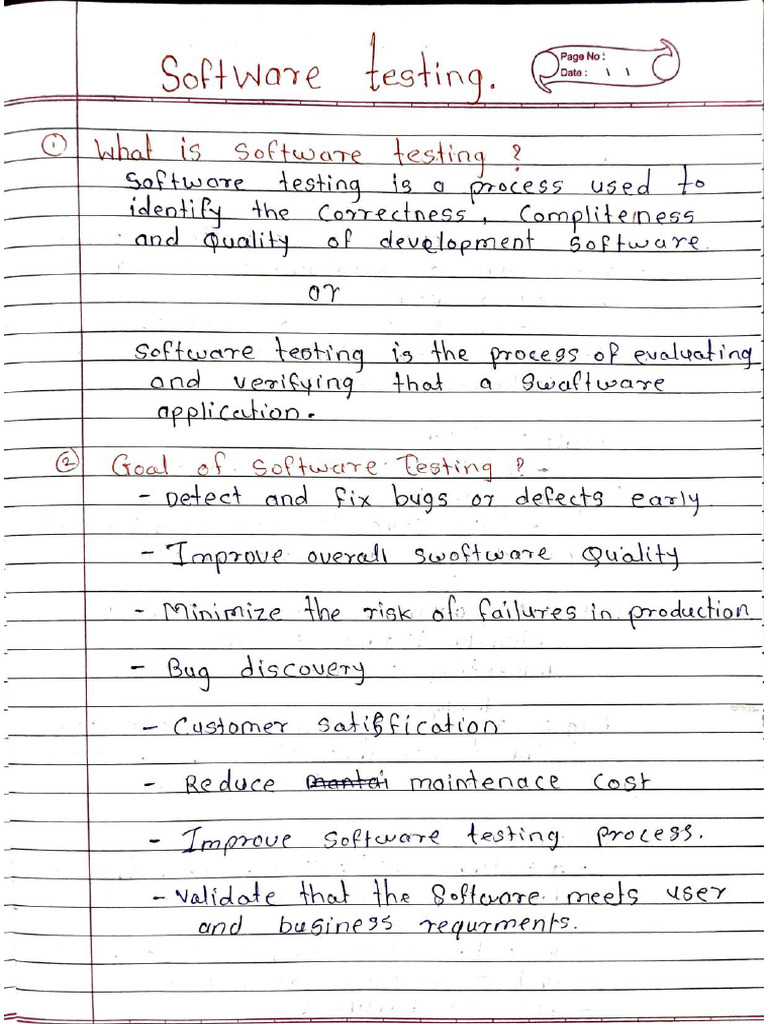 Software testing.
Page No:
Date: / /
① What is software testing?
Software testing is a process used to
identify the correctness, Compliteness
and Quality of development software.
or
Software testing is the process of evaluating
and verifying that a swaftware
application.
② Goal of software Testing? -
- Detect and fix bugs or defects early
- Improve overall swoftware Quality
- Minimize the risk of failures in production
- Bug discovery
- Customer satisffication
- Reduce mantai maintenace cost
- Improve software testing process.
- Validate that the Software meets user
and business requrments.